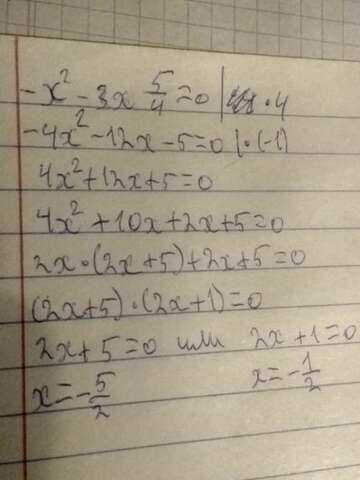 -x² - 3x 5/4 = 0 | · 4
-4x² - 12x - 5 = 0 | · (-1)
4x² + 12x + 5 = 0
4x² + 10x + 2x + 5 = 0
2x · (2x + 5) + 2x + 5 = 0
(2x + 5) · (2x + 1) = 0
2x + 5 = 0 или 2x + 1 = 0
x = -5/2 x = -1/2